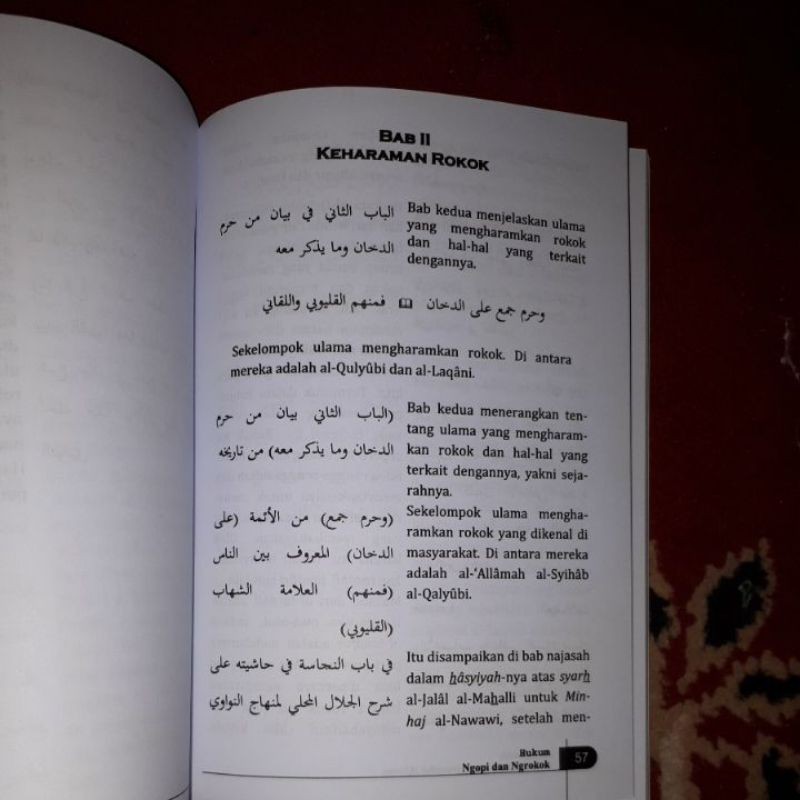 BAB II
KEHARAMAN ROKOK
الباب الثاني في بيان من حرم
الدخان وما يذكر معه
Bab kedua menjelaskan ulama
yang mengharamkan rokok
dan hal-hal yang terkait
dengannya.
وحرم جمع على الدخان 🕮 فمنهم القليوبي واللقاني
Sekelompok ulama mengharamkan rokok. Di antara
mereka adalah al-Qulyûbi dan al-Laqâni.
(الباب الثاني بيان من حرم
الدخان وما يذكر معه) من تاريخه
Bab kedua menerangkan ten-
tang ulama yang mengharam-
kan rokok dan hal-hal yang
terkait dengannya, yakni seja-
rahnya.
(وحرم جمع) من الأئمة (على
الدخان) المعروف بين الناس
(فمنهم) العلامة الشهاب
(القليوبي)
Sekelompok ulama mengha-
ramkan rokok yang dikenal di
masyarakat. Di antara mereka
adalah al-'Allâmah al-Syihâb
al-Qalyûbi.
في باب النجاسة في حاشيته على
شرح الجلال المحلي لمنهاج النواوي
Itu disampaikan di bab najasah
dalam hâsyiyah-nya atas syarh
al-Jalâl al-Mahalli untuk Min-
haj al-Nawawi, setelah men-
Hukum
Ngopi dan Ngrokok
57